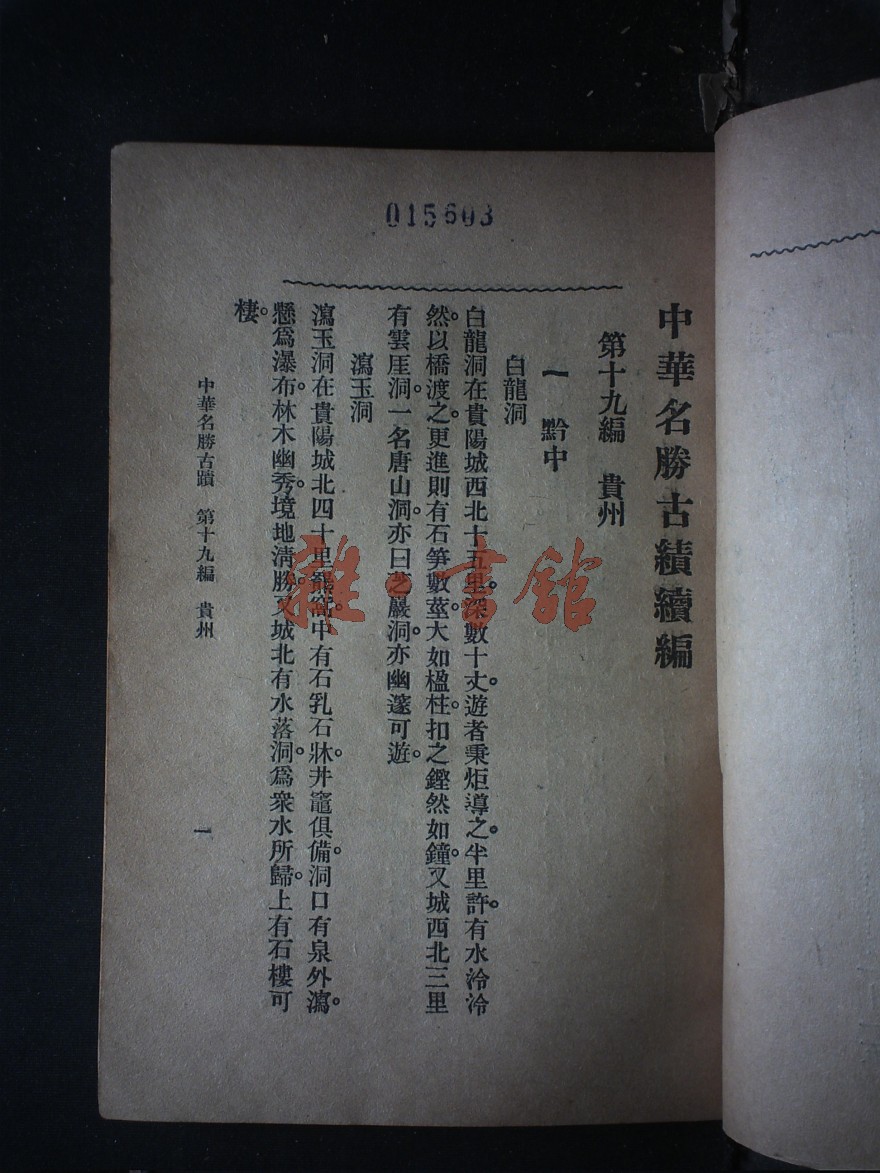 015603
中華名勝古績續編
第十九編　貴州
一　黔中
白龍洞
白龍洞在貴陽城西北十五里。深數十丈。遊者秉炬導之。半里許。有水泠泠
然。以橋渡之。更進則有石笋數莖。大如楹柱。扣之鏗然如鐘。又城西北三里
有雲厓洞。一名唐山洞。亦曰芝巖洞。亦幽邃可遊。
瀉玉洞
瀉玉洞在貴陽城北四十里中有石乳石牀。井竈俱備。洞口有泉外瀉。
懸爲瀑布。林木幽秀。境地淸勝。又城北有水落洞。爲衆水所歸。上有石樓可
棲。
中華名勝古蹟　第十九編　貴州
一
雜·書館